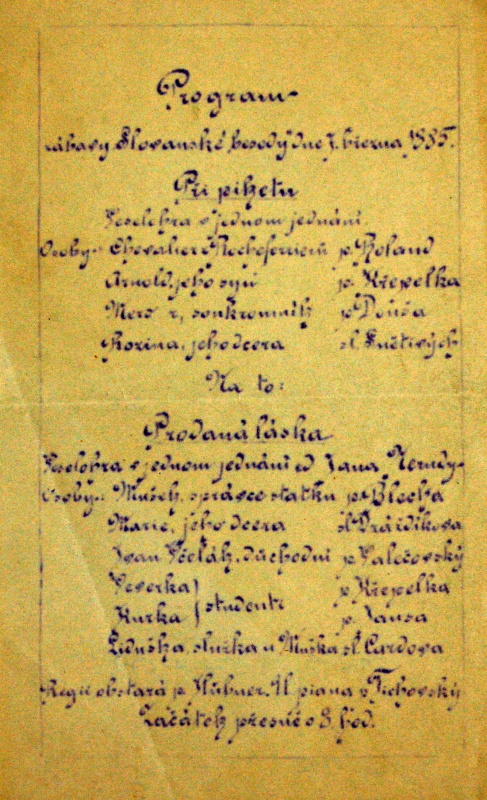 Program
zábavy "Slovanské besedy" dne 7. března 1885.
Při piketu
Veselohra v jednom jednání.
Osoby: Chevalier Rocheferrier p. Roland
Arnold, jeho syn p. Křepelka
Mercier, soukromník p. Douša
Rozina, jeho dcera sl.
Na to:
Prodaná láska
Veselohra v jednom jednání od Jana Nerudy.
Osoby: Mušek, správce statku p. Blecha
Marie, jeho dcera sl. Dráždíkova
Ivan Včelák, důchodní p. Valečovský
Veverka } studenti p. Křepelka
Kurka p. Jansa
Liduška, služka u Muška sl. Cardova
Regii obstará p. Hübner. U piana p. Tichovský
Začátek přesně o 8. hod.